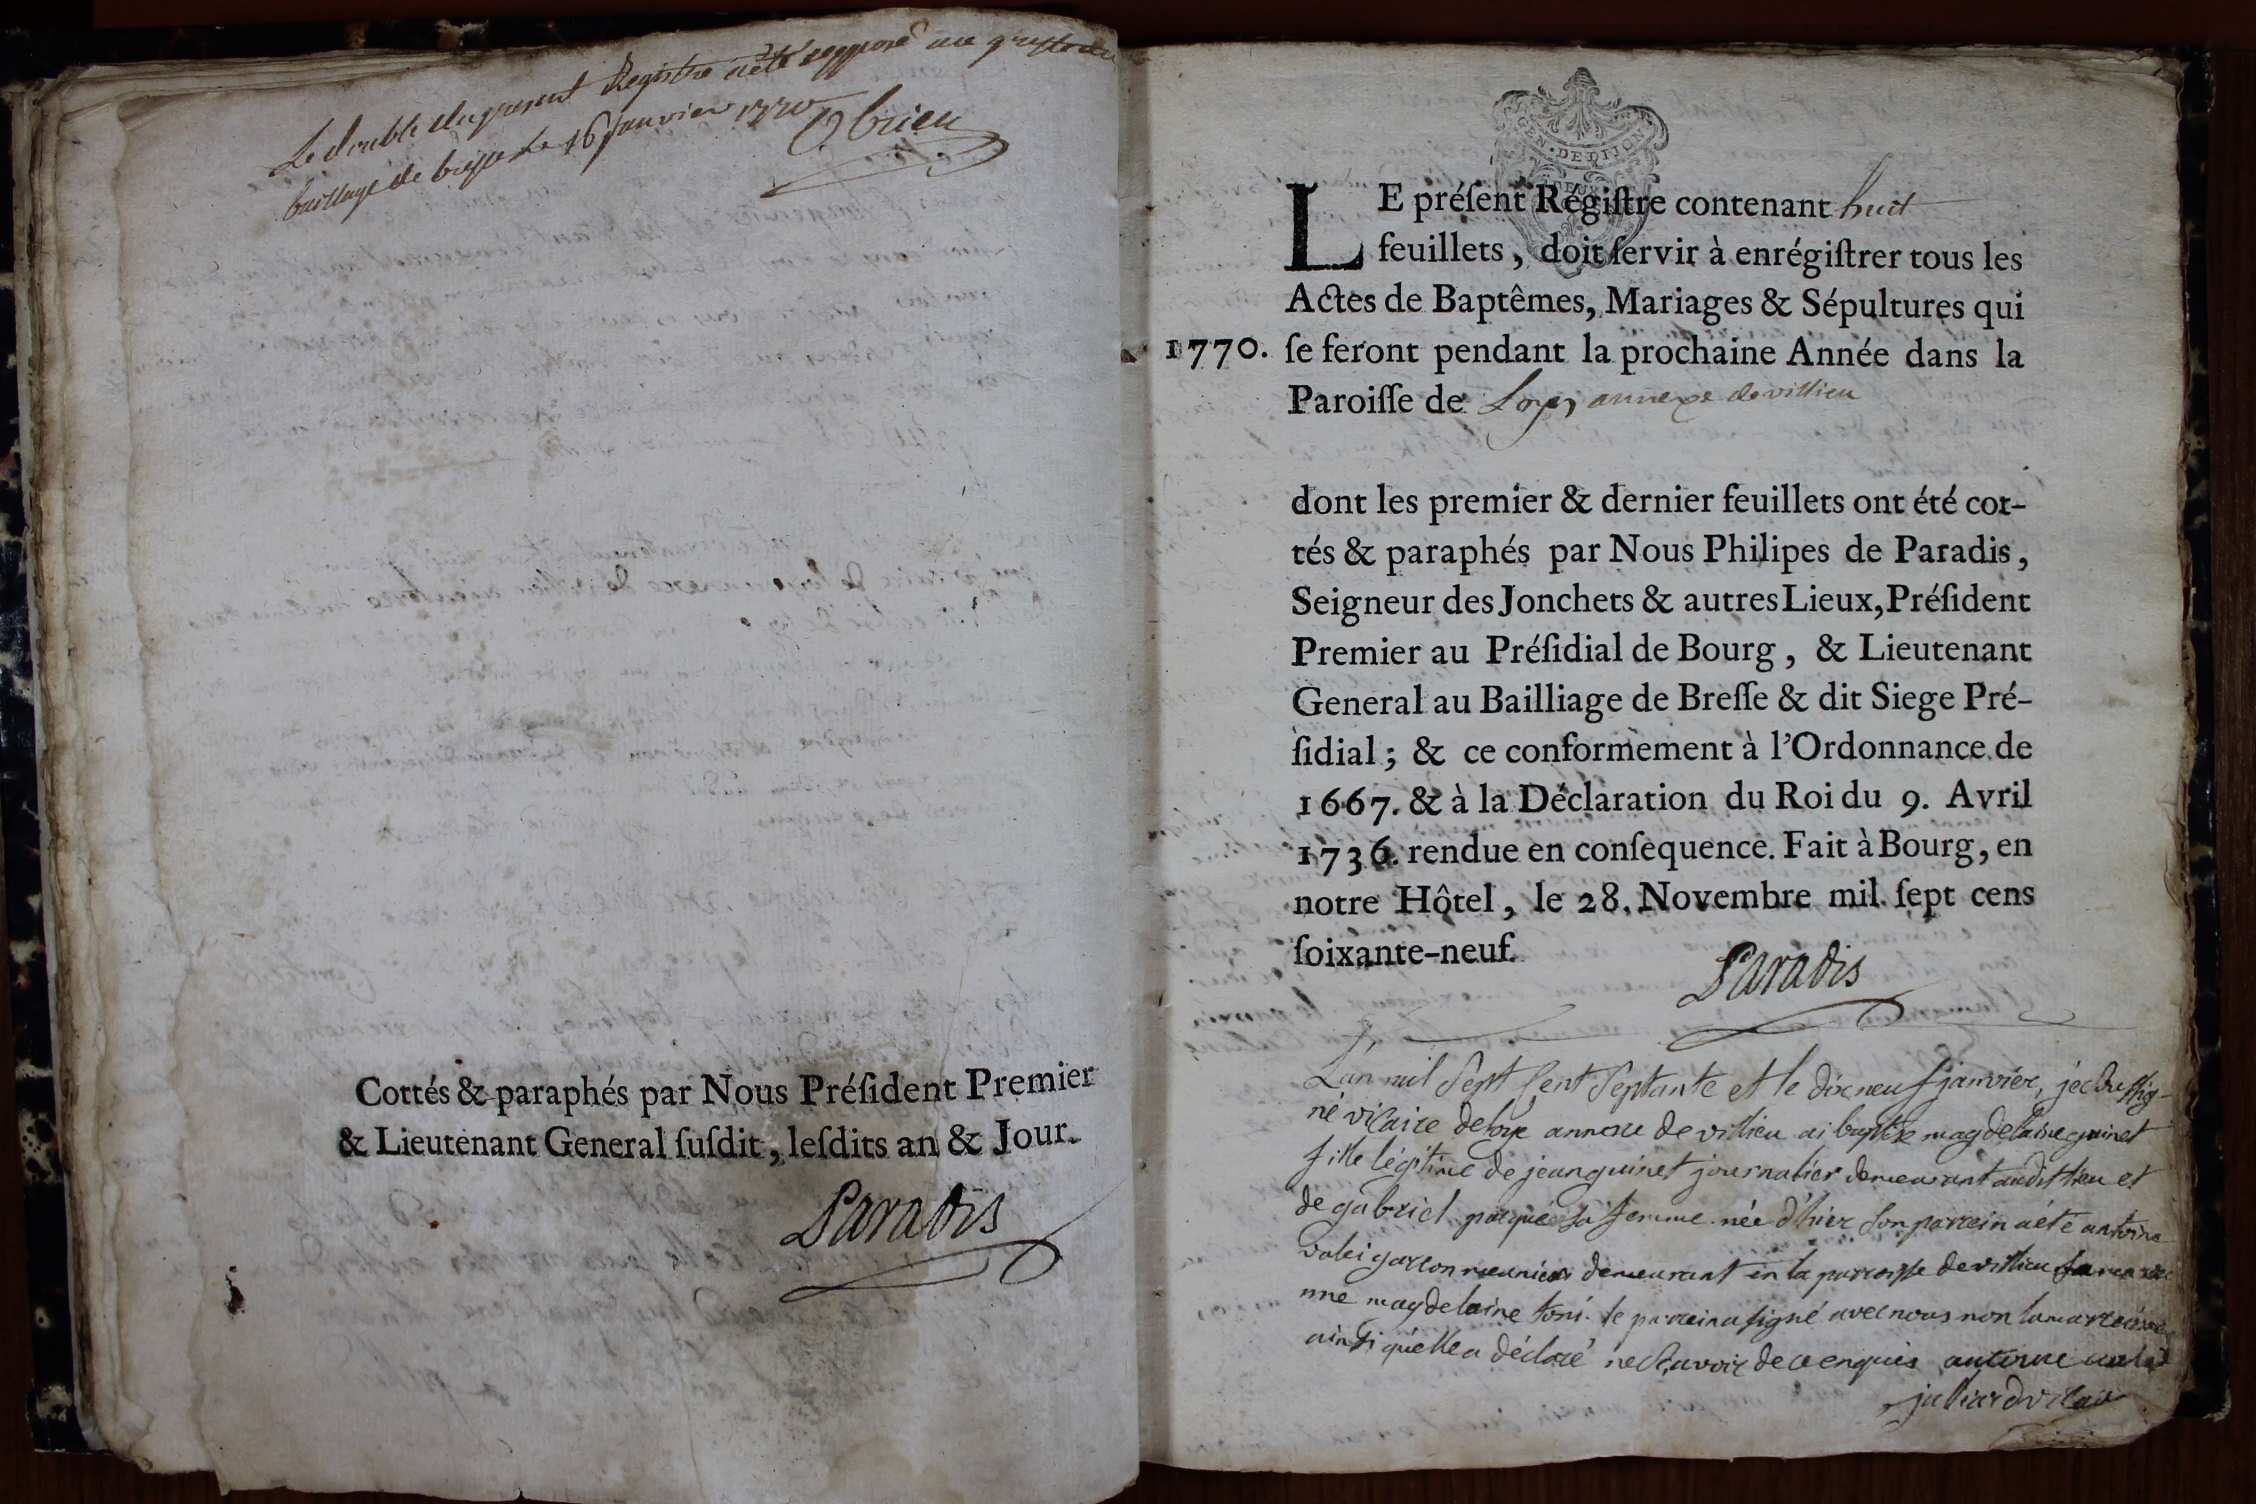 Le double du present Registre a eté depposé au greffe du
bailliage de bresse Le 16 janvier 1770
Obrien
Cottés & paraphés par Nous Préſident Premier
& Lieutenant General ſuſdit, leſdits an & Jour.
Paradis
GEN. DE DIJON
LE préſent Regiſtre contenant huit
feuillets, doit ſervir à enrégiſtrer tous les
Actes de Baptêmes, Mariages & Sépultures qui
1770. ſe feront pendant la prochaine Année dans la
Paroiſſe de Loyes annexe de villieu
dont les premier & dernier feuillets ont été cot-
tés & paraphés par Nous Philipes de Paradis,
Seigneur des Jonchets & autres Lieux, Préſident
Premier au Préſidial de Bourg, & Lieutenant
General au Bailliage de Breſſe & dit Siege Pré-
ſidial; & ce conformement à l'Ordonnance de
1667. & à la Déclaration du Roi du 9. Avril
1736. rendue en conſequence. Fait à Bourg, en
notre Hôtel, le 28. Novembre mil ſept cens
ſoixante-neuf.
Paradis
L'an mil Sept Cent Septante et le dix neuf janvier, je soussig-
né vicaire de loye annexe de villieu ai baptisé magdelaine guinet
fille légitime de jean guinet journalier demeurant audit lieu et
de gabriel sa femme née d'hier son parrein a été antoine
garcon meunier demeurant en la parroisse de villieu
magdelaine le parrein a signé avec nous non la marreine
ainsi qu'elle a déclaré ne Sçavoir de ce enquis antoine
julliard vicaire